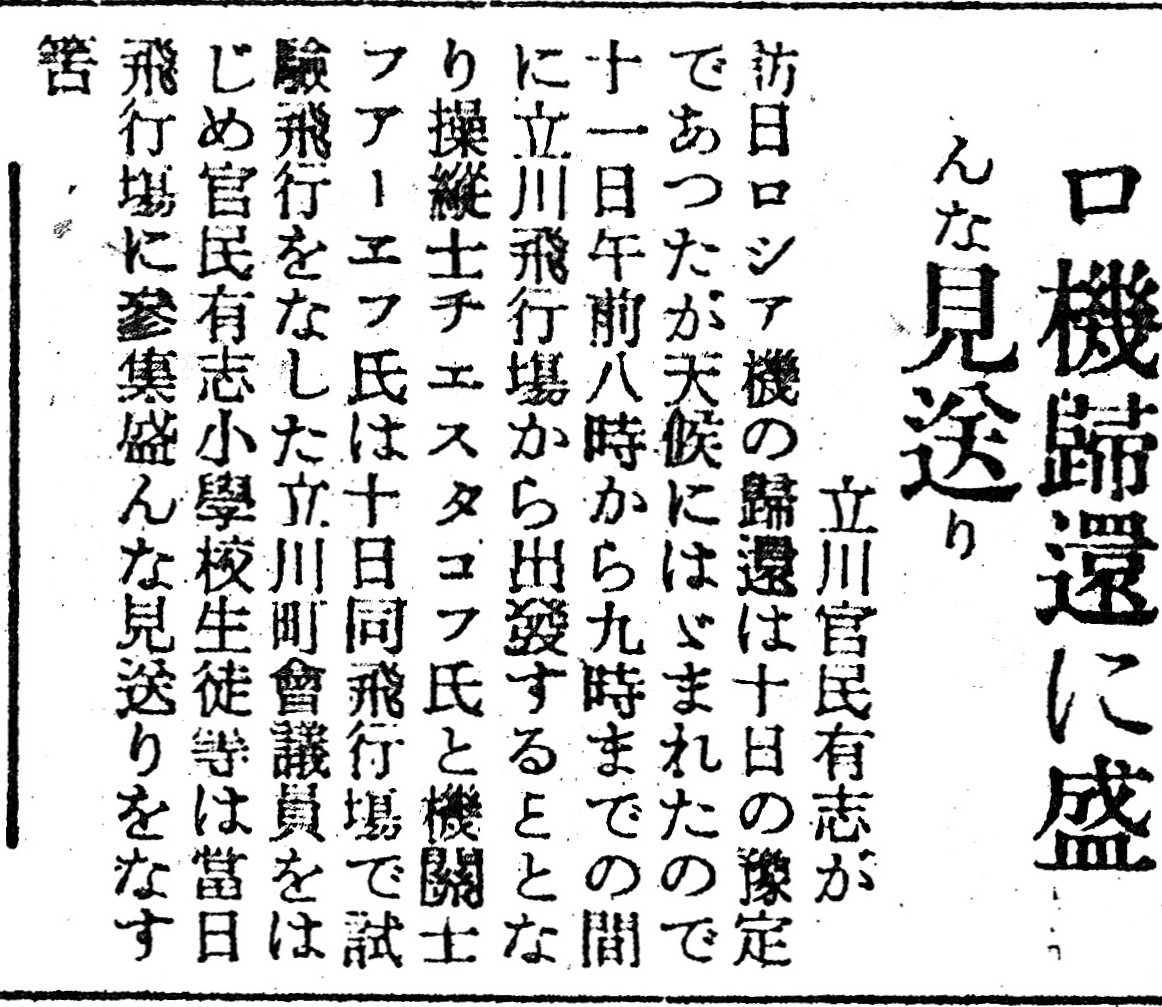 ロ機歸還に盛
んな見送り
立川官民有志が
訪日ロシア機の歸還は十日の豫定
であつたが天候にはゞまれたので
十一日午前八時から九時までの間
に立川飛行場から出發することとな
り操縱士チエスタコフ氏と機關士
フアーエフ氏は十日同飛行場で試
驗飛行をなした立川町會議員をは
じめ官民有志小學校生徒等は當日
飛行場に參集盛んな見送りをなす
筈